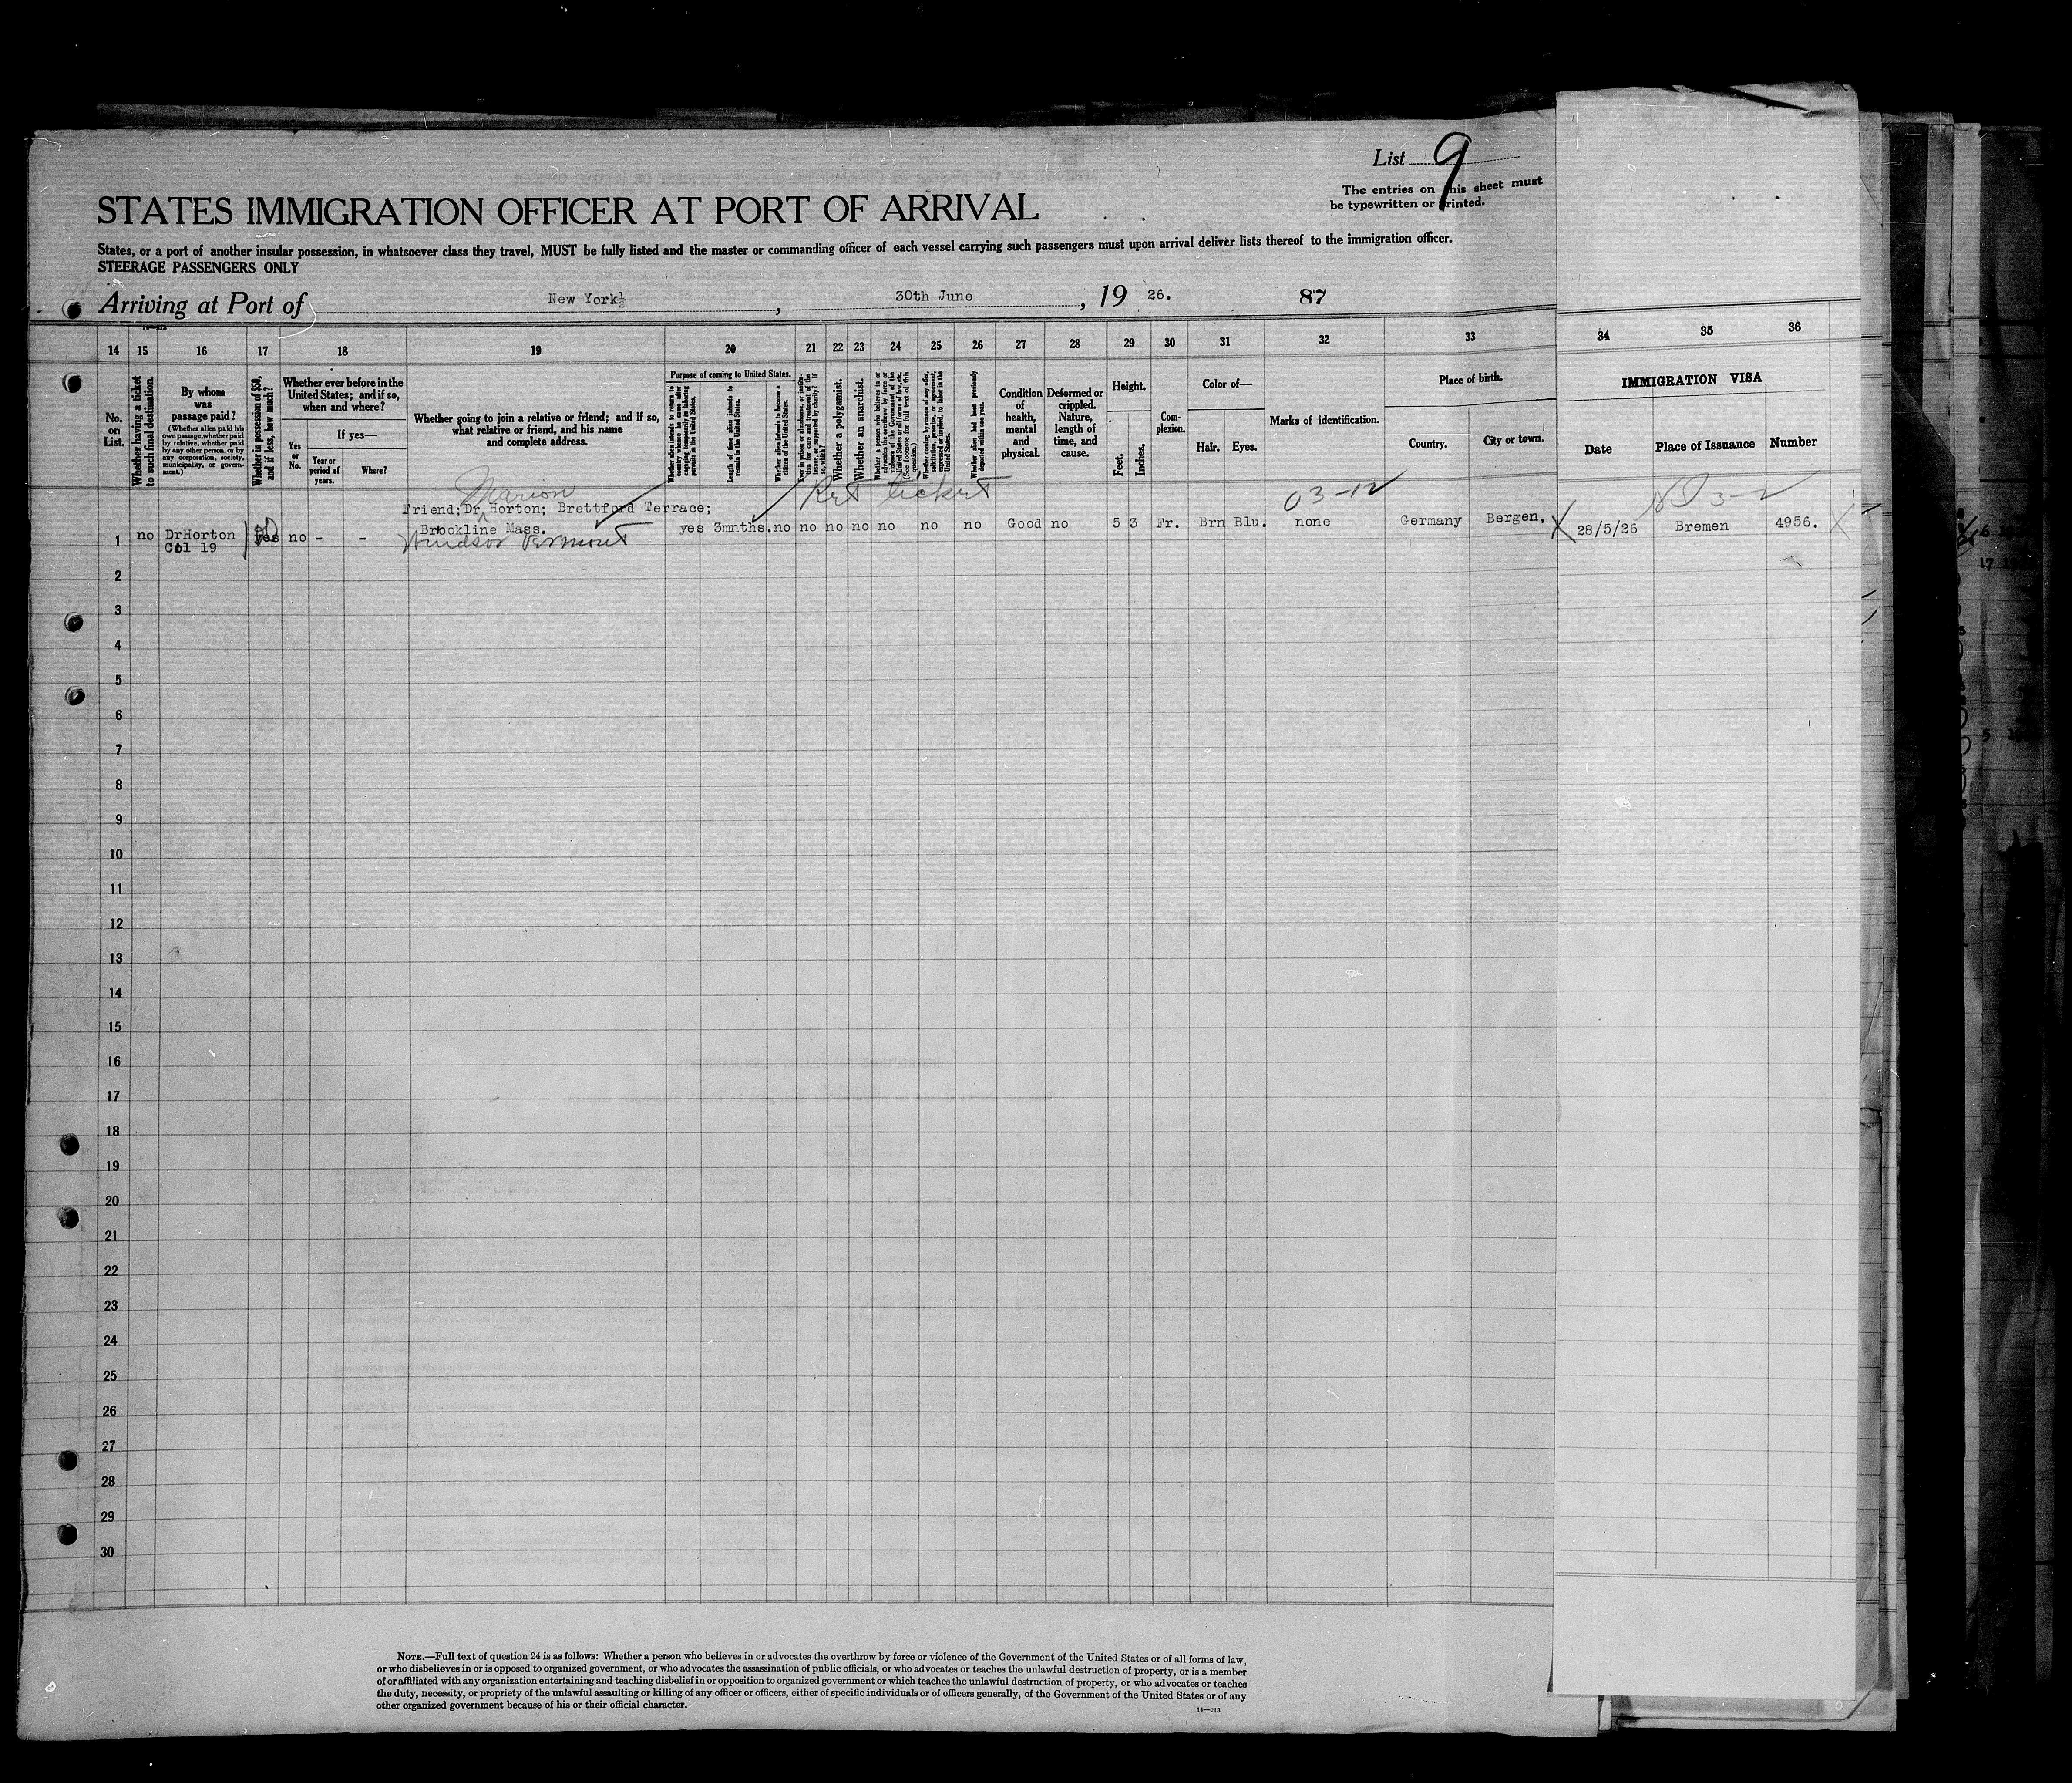 List 9
The entries on this sheet must
be typewritten or printed.
STATES IMMIGRATION OFFICER AT PORT OF ARRIVAL
States, or a port of another insular possession, in whatsoever class they travel, MUST be fully listed and the master or commanding officer of each vessel carrying such passengers must upon arrival deliver lists thereof to the immigration officer.
STEERAGE PASSENGERS ONLY
Arriving at Port of New York, 30th June, 19 26. 87
14 15 16 17 18 19 20 21 22 23 24 25 26 27 28 29 30 31 32 33 34 35 36
No. on List.
Whether having a ticket to such final destination.
By whom was passage paid?
(Whether alien paid his own passage, whether paid by relative, whether paid by any other person, or by any corporation, society, municipality, or government.)
Whether in possession of $50, and if less, how much?
Whether ever before in the United States; and if so, when and where?
Yes or No.
If yes—
Year or period of years.
Where?
Whether going to join a relative or friend; and if so, what relative or friend, and his name and complete address.
Purpose of coming to United States.
Whether alien intends to return to country whence he came after engaging temporarily in laboring pursuits in the United States.
Length of time alien intends to remain in the United States.
Whether alien intends to become a citizen of the United States.
Ever in prison or almshouse, or institution for care and treatment of the insane, or supported by charity? If so, which?
Whether a polygamist.
Whether an anarchist.
Whether a person who believes in or advocates the overthrow by force or violence of the Government of the United States or all forms of law, etc. (See footnote for full text of this question.)
Whether coming by reason of any offer, solicitation, promise, or agreement, expressed or implied, to labor in the United States.
Whether alien had been previously deported within one year.
Condition of health, mental and physical.
Deformed or crippled. Nature, length of time, and cause.
Height.
Feet.
Inches.
Complexion.
Color of—
Hair.
Eyes.
Marks of identification.
Place of birth.
Country.
City or town.
IMMIGRATION VISA
Date
Place of Issuance
Number
Marion
Ret ticket
03-12
Friend; Dr Horton; Brettford Terrace;
Brookline Mass.
Windsor Vermont
1 no DrHorton yes no - - yes 3mnths. no no no no no no no Good no 5 3 Fr. Brn Blu. none Germany Bergen, X 28/5/26 Bremen 4956. X
Col 19
2
3
4
5
6
7
8
9
10
11
12
13
14
15
16
17
18
19
20
21
22
23
24
25
26
27
28
29
30
NOTE.—Full text of question 24 is as follows: Whether a person who believes in or advocates the overthrow by force or violence of the Government of the United States or of all forms of law,
or who disbelieves in or is opposed to organized government, or who advocates the assassination of public officials, or who advocates or teaches the unlawful destruction of property, or is a member
of or affiliated with any organization entertaining and teaching disbelief in or opposition to organized government or which teaches the unlawful destruction of property, or who advocates or teaches
the duty, necessity, or propriety of the unlawful assaulting or killing of any officer or officers, either of specific individuals or of officers generally, of the Government of the United States or of any
other organized government because of his or their official character.
14—213